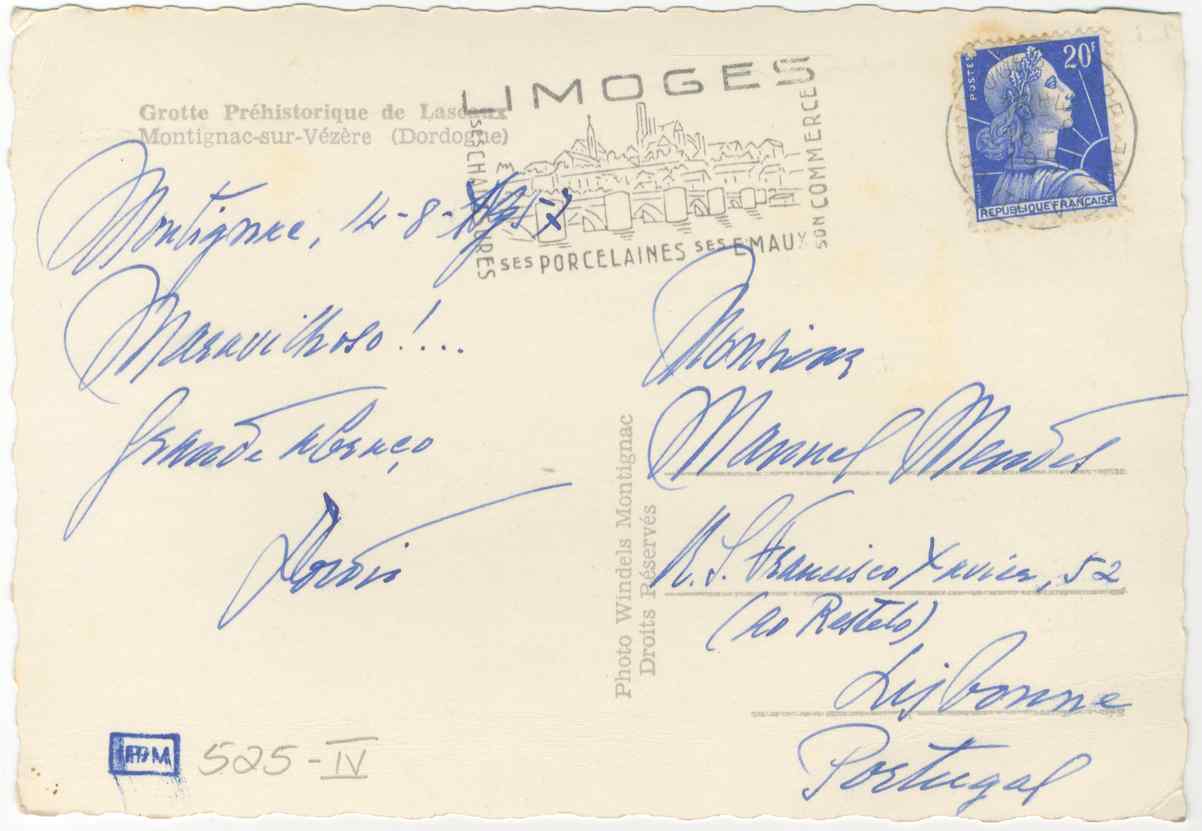 Grotte Préhistorique de Lascaux
Montignac-sur-Vézère (Dordogne)
LIMOGES
SES CHAUSSURES
SES PORCELAINES SES EMAUX
SON COMMERCE
POSTES
20F
REPUBLIQUE FRANÇAISE
Montignac, 14-8-1957
Maravilhoso!...
Grande abraço
Photo Windels Montignac
Droits Réservés
Monsieur
Manuel Mendes
R. S. Francisco Xavier, 52
(ao Restelo)
Lisbonne
Portugal
525-IV